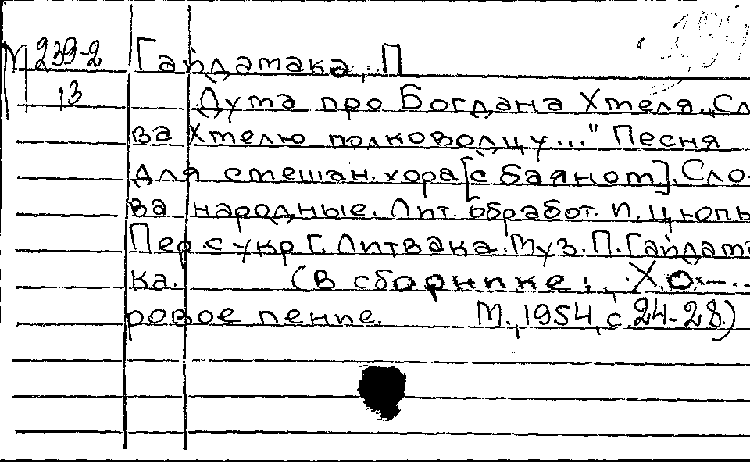 М 239-2 Гайдамака, П
13 Дума про Богдана Хмеля „Сл
ва Хмелю полководцу..." Песня
для смешан. хора [с баяном]. Сло-
ва народные. Лит. обработ. И. Цюпы
Пер с укр Г. Литвака. Муз. П. Гайдама
ка. (В сборнике: Хо-
ровое пение. М., 1954, с 24-28)